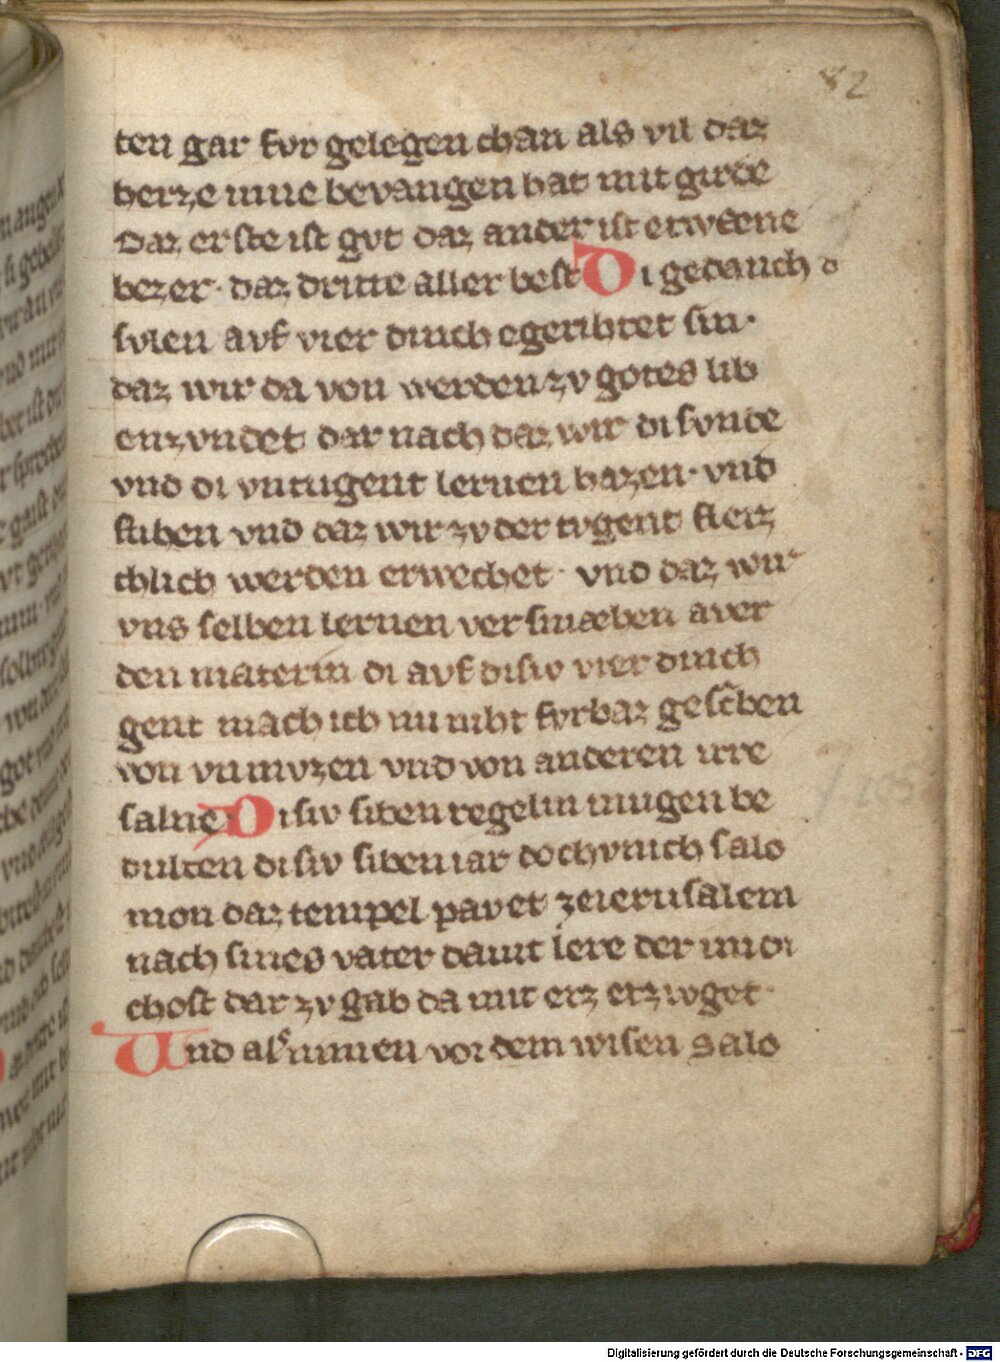 82
ten gar fvr gelegen chan als vil daz
herze inne bevangen hat mit girde
Daz erste ist gvt daz ander ist etwene
bezer· daz dritte aller best Di gedanch
svlen avf vier dinch egerihtet sin·
daz wir da von werden zv gotes lib
enzvndet dar nach daz wir di svnde
vnd di vntugent lernen hazen· vnd
flihen vnd daz wir zv der tvgent
chlich werden erwechet· vnd daz wir
vns selben lernen versmæhen aver
den materin di avf disiv vier dinch
gent mach ich nu niht fvrbaz geschben
von vnnvzen vnd von anderen irre
salne Disiv siben regelin mugen be
dvlten disiv siben iar doch vnich salo
mon daz tempel pavet ze ierusalem
nach sines vater davit lere der im di
chost dar zv gab da mit erz erzivget·
Und alsnimen vor dem wisen Salo
Digitalisierung gefördert durch die Deutsche Forschungsgemeinschaft - DFG